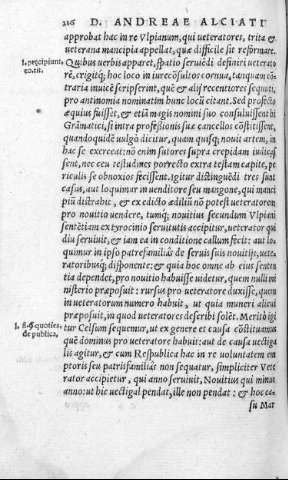 216 D. ANDREAE ALCIATI
approbat hac in re Vlpianum, qui ueteratores, trita &
ueterana mancipia appellat, quæ difficile sit reformare.
l. præcipiunt.
Quibus uerbis apparet, spatio seruiēdi definiri ueterato
rē, crigitq; hoc loco in iurecōsultos cornua, tanquam cō
traria inuicē scripserint, quē & alij recentiores sequuti,
pro antinomia nominatim hunc locū citant. Sed profecto
æquius fuisset, & etiā magis nomini suo consuluissent hi
Grāmatici, si intra professionis suæ cancellos cōstitissent,
quandoquidē uulgò dicitur, quam quisq; nouit artem, in
hac se exerceat: nō enim sutores supra crepidam iudicas
sent, nec ceu testudines porrecto extra testam capite, pe
riculi se obnoxios fecissent. igitur distinguēdi tres sunt
casus, aut loquimur in uenditore seu mangone, qui manci
pia distrahit, & ex edicto ædiliū nō potest ueteratorem
pro nouitio uendere, tumq; nouitius secundum Vlpiani
sentētiam ex tyrocinio seruitutis accipitur, ueterator qui
diu seruiuit, & iam ea in conditione callum fecit: aut lo
quimur in ipso patrefamiliâs de seruis suis nouitijs, uete
ratoribusq; disponente: & quia hoc omne ab eius senten
tia dependet, pro nouitio habuisse uidetur, quem nulli mi
nisterio præposuit: rursus pro ueteratore duxisse, quem
in ueteratorum numero habuit, ut quia muneri alicui
præposuit, in quod ueteratores describi solēt. Meritò igi
l. si quoties.
de publica.
tur Celsum sequemur, ut ex genere et causa cōstituamus
quē dominus pro ueteratore habuit: aut de causa uectiga
lis agitur, & cum Respublica hac in re uoluntatem em
ptoris seu patrisfamiliâs non sequatur, simpliciter Vete
rator accipietur, qui anno seruiuit, Nouitius qui minus
anno: ut hic uectigal pendat, ille non pendat: & hoc ca-
su Mar